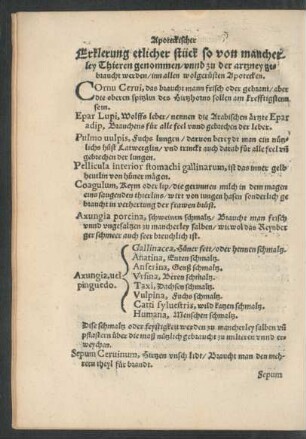 Apoteckischer
Erklerung etlicher stück so von mancher-
ley Thieren genommen/vnnd zu der artzney ge-
braucht werden/inn allen wolgerüsten Apotecken.
Cornu Cerui, das braucht mann frisch oder gebrant/aber
die oberen spitzlin des Hirtzhorns sollen am krefftigsten
sein.
Epar Lupi, Wolffs leber/nennen die Arabischen ärtzte Epar
adip, Brauchens für alle feel vnnd gebrechen der leber.
Pulmo uulpis, Fuchs lungen/daruon bereyt man ein nütz-
lichs süsst Latwerglin/vnd braucht auch dauon für alle feel vñ
gebrechen der lungen.
Pellicula interior stomachi gallinarum, ist das inner gelb
heutlin von hüner mägen.
Coagulum, Keym oder lip/die gerunnen milch in dem magen
eins saugenden thierlins/wirt von jungen hasen sonderlich ge
braucht in verherung der frawen brüst.
Axungia porcina, schweinen schmaltz/Braucht man frisch
vnnd vngesaltzen zu mancherley salben/wiewol das Reynber
ger schmeer auch seer breuchlich ist.
Axungia, uel
pinguedo.
Gallinacea, Hüner fett/oder hennen schmaltz.
Anatina, Enten schmaltz.
Anserina, Genß schmaltz.
Vrsina, Beren schmaltz.
Taxi, Dachsen schmaltz.
Vulpina, Fuchs schmaltz.
Catti syluestris, wild katzen schmaltz.
Humana, Menschen schmaltz.
Dise schmaltz oder feysstigkeit werden zu mancherley salben vñ
pflastern über die maß nützlich gebraucht zu miltern vnnd er-
weychen.
Sepum Ceruinum, Hirtzen vnschlidt/Braucht man den meh-
rern theyl für brandt.
Sepum